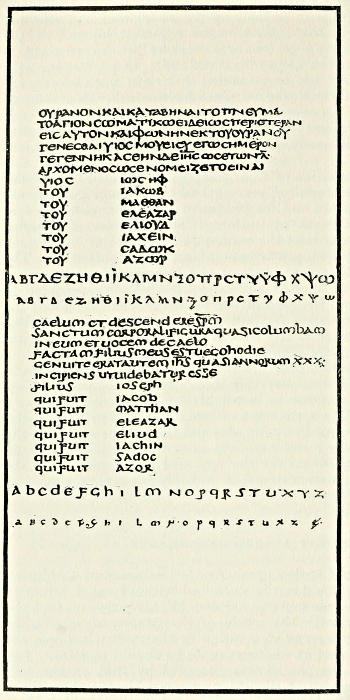 ΟΥΡΑΝΟΝΚΑΙΚΑΤΑΒΗΝΑΙΤΟΠΝΕΥΜΑ
ΤΟΑΓΙΟΝϹΩΜΑΤΙΚΩΕΙΔΕΙΩϹΠΕΡΙϹΤΕΡΑΝ
ΕΙϹΑΥΤΟΝΚΑΙΦΩΝΗΝΕΚΤΟΥΟΥΡΑΝΟΥ
ΓΕΝΕϹΘΑΙΥΙΟϹΜΟΥΕΙϹΥΕΓΩϹΗΜΕΡΟΝ
ΓΕΓΕΝΝΗΚΑϹΕΗΝΔΕΙΗϹΩϹΕΤΩΝΛ̅
ΑΡΧΟΜΕΝΟϹΩϹΕΝΟΜΕΙΖΕΤΟΕΙΝΑΙ
ΥΙΟϹ ΙΩϹΗΦ
ΤΟΥ ΙΑΚΩΒ
ΤΟΥ ΜΑΘΘΑΝ
ΤΟΥ ΕΛΕΑΖΑΡ
ΤΟΥ ΕΛΙΟΥΔ
ΤΟΥ ΙΑΧΕΙΝ
ΤΟΥ ϹΑΔΩΚ
ΤΟΥ ΑΖΩΡ
ΑΒΓΔΕΖΗΘΙΪΚΛΜΝΞΟΠΡϹΤΥΫΦΧΨΩ
ΑΒΓΔΕΖΗΘΙΪΚΛΜΝΞΟΠΡϹΤΥΦΧΨΩ
caelum et descendere sp̅m̅
sanctum corporali figura quasi columbam
in eum et uocem de caelo
factam filius meus es tu ego hodie
genui te erat autem ih̅s quasi annorum xxx
incipiens ut uidebatur esse
filius ioseph
qui fuit iacob
qui fuit matthan
qui fuit eleazar
qui fuit eliud
qui fuit iachin
qui fuit sadoc
qui fuit azor
a b c d e f g h i l m n o p q r s t u x y z
a b c d e f g h i l m n o p q r s t u x z